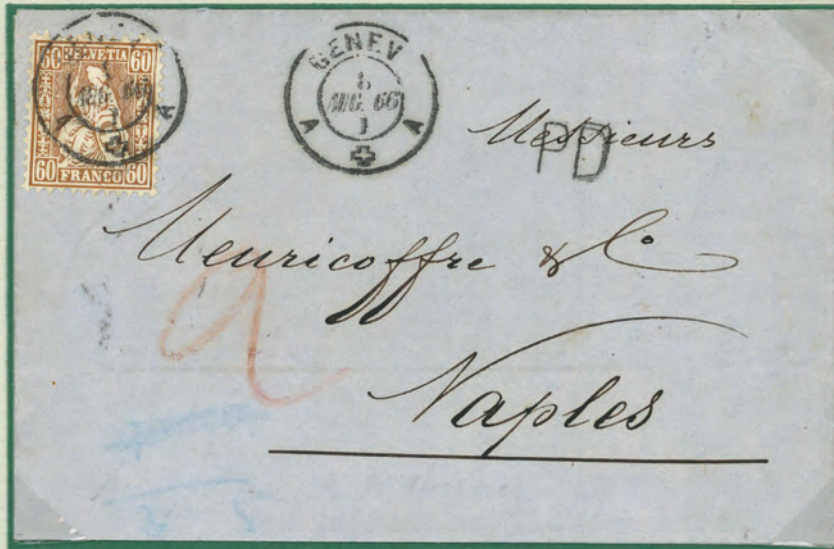 60 HELVETIA 60
60 FRANCO 60
GENEV
AUG. 66
1
A A
PD
Messieurs
Meuricoffre & Co
Naples